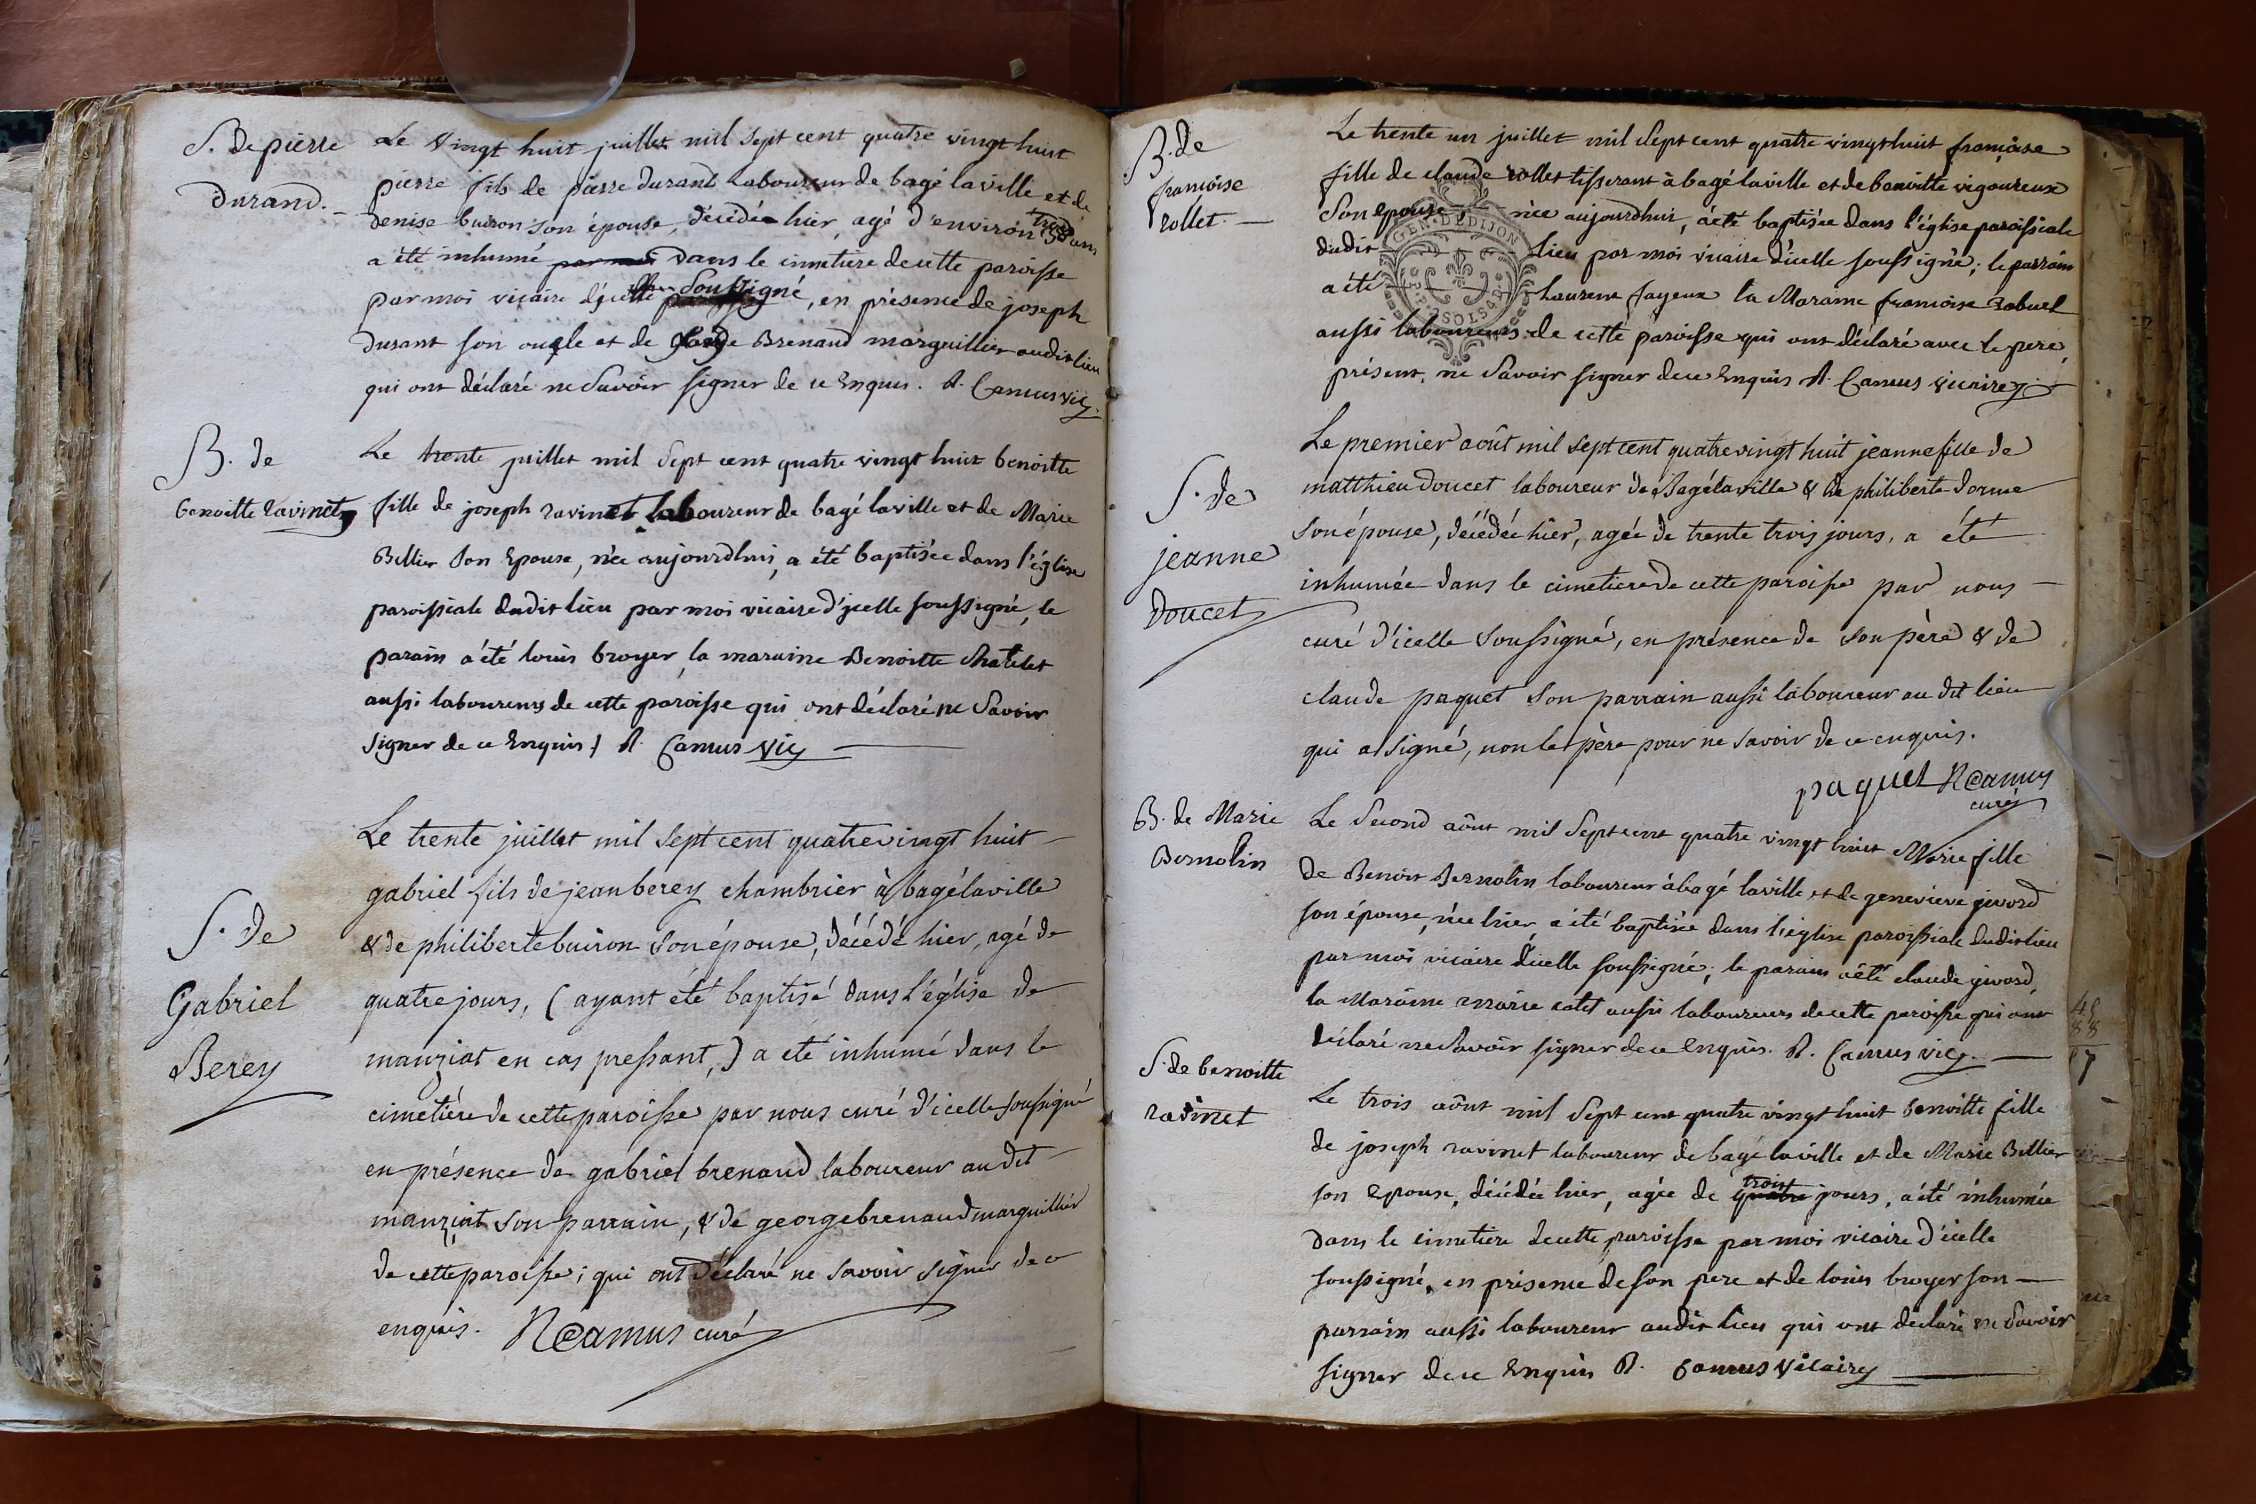 S. de pierre
Durand.
Le vingt huit juillet mil sept cent quatre vingt huit
pierre fils de pierre durand Laboureur de bagé laville et de
denise buiron son épouse, décédé hier, agé d'environ trois ans
a été inhumé par moi dans le cimetiere de cette paroisse
par moi vicaire d'jcelle soussigné, en présence de joseph
durant son oncle et de Brenand marguillier audit lieu
qui ont déclaré ne savoir signer de ce Enquis. R. Camus vic.
B. de
benoitte ravinet
Le trente juillet mil sept cent quatre vingt huit benoitte
fille de joseph ravinet laboureur de bagé laville et de Marie
Billier son Epouse, née aujourdhui, a été baptisée dans l'église
paroissiale dudit lieu par moi vicaire d'jcelle soussigné, le
parain a été louis broyer, la maraine Benoitte Chatelet
aussi laboureurs de cette paroisse qui ont déclaré ne savoir
signer de ce Enquis / R. Camus vic
S. de
Gabriel
Berey
Le trente juillet mil sept cent quatre vingt huit
gabriel fils de jean berey chambrier à bagélaville
& de philiberte buiron son épouse, décédé hier, agé de
quatre jours, (ayant été baptisé dans l'église de
manziat en cas pressant,) a été inhumé dans le
cimetière de cette paroisse par nous curé d'icelle soussigné
en présence de gabriel brenaud laboureur au dit
manziat son parrain, & de george brenaud marguillier
de cette paroisse; qui ont déclaré ne savoir signer de ce
enquis. N Camus curé
B. de
francoise
rollet.
Le trente un juillet mil sept cent quatre vingt huit francoise
fille de claude rollet tisserant à bagé laville et de benoitte vigoureux
son epouse, née aujourdhui, a été baptisée dans l'église paroissiale
dudit lieu par moi vicaire d'icelle soussigné; le parrain
a été Laurent fayeux la Maraine francoise rabuel
aussi laboureurs de cette paroisse qui ont déclaré avec le pere
présent, ne savoir signer de ce Enquis R. Camus vicaire
GEN. DE DIJON
S. de
jeanne
Doucet
Le premier août mil sept cent quatre vingt huit jeanne fille de
matthieu doucet laboureur de Bagélaville & de philiberte dorme
son épouse, décédée hier, agée de trente trois jours, a été
inhumée dans le cimetiere de cette paroisse par nous
curé d'icelle soussigné, en présence de son père & de
claude paquet son parrain aussi laboureur au dit lieu
qui a signé, non le père pour ne savoir de ce enquis.
paquet N Camus
curé
B. de Marie
Bernolin
Le second aôut mil sept cent quatre vingt huit Marie fille
de Benoit Bernolin laboureur à bagé laville et de genevieve givord
son épouse, née hier, a été baptisée dans l'église paroissiale dudit lieu
par moi vicaire d'icelle soussigné; le parain a été claude givord,
la Maraine marie catet aussi laboureurs de cette paroisse qui ont
déclaré ne savoir signer de ce Enquis. R. Camus vic.
S. de benoitte
ravinet
Le trois aôut mil sept cent quatre vingt huit benoitte fille
de joseph ravinet laboureur de bagé laville et de Marie Billier
son Epouse, décédée hier, agée de quatre trois jours, a été inhumée
dans le cimetiere de cette paroisse par moi vicaire d'icelle
soussigné, en présence de son pere et de louis broyer son
parrain aussi laboureur audit lieu qui ont déclaré ne savoir
signer de ce Enquis R. Camus vicaire